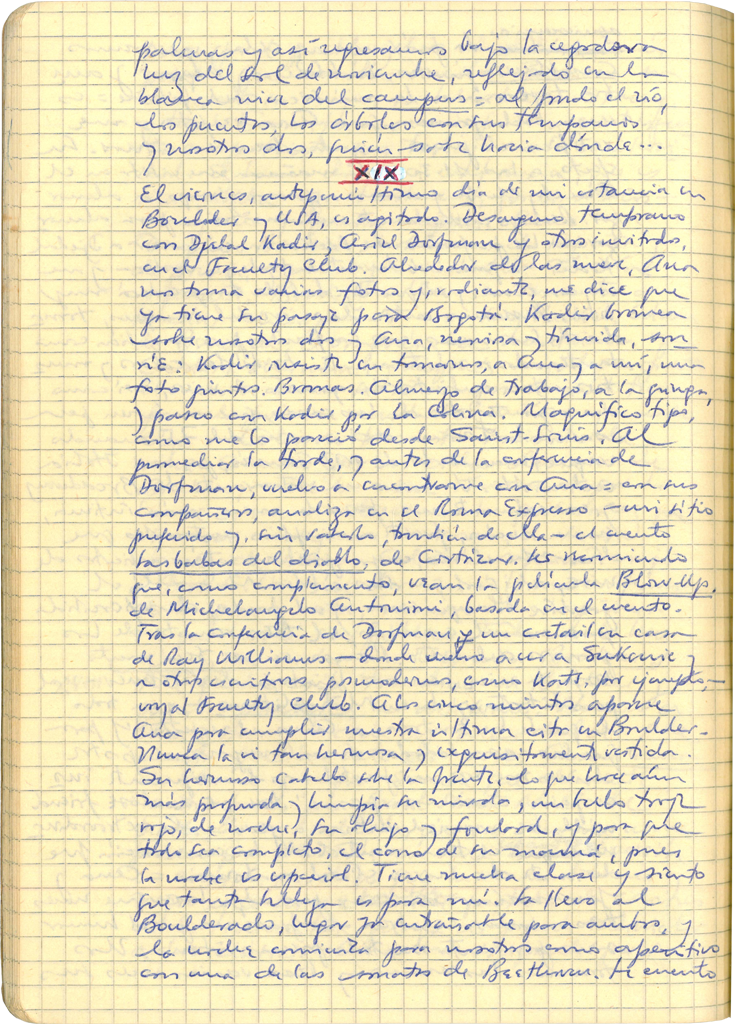 palmas y así regresamos bajo la cegadora
luz del sol de noviembre, reflejado en la
blanca nieve del campus = al fondo el río,
los puentes, los árboles con sus témpanos
y nosotros dos, quién sabe hacia dónde...
XIX
El viernes, antepenúltimo día de mi estancia en
Boulder y USA, es agitado. Desayuno temprano
con Djelal Kadir, Ariel Dorfman y otros invitados,
en el Faculty Club. Alrededor de las nueve, Ana
nos toma varias fotos y, radiante, me dice que
ya tiene su pasaje para Bogotá. Kadir bromea
sobre nosotros dos y Ana, nerviosa y tímida, son-
ríe: Kadir insiste en tomarnos, a Ana y a mí, una
foto juntos. Bromas. Almuerzo de trabajo, a la gringa,
y paseo con Kadir por la Colina. Magnífico tipo,
como me lo pareció desde Saint-Louis. Al
promediar la tarde, y antes de la conferencia de
Dorfman, vuelvo a encontrarme con Ana = con sus
compañeros, analiza en el Roma Expresso — mi sitio
preferido y, sin saberlo, también de ella — el cuento
Las babas del diablo, de Cortázar. Les recomiendo
que, como complemento, vean la película Blow-Up,
de Michelangelo Antonioni, basada en el cuento.
Tras la conferencia de Dorfman y un coctail en casa
de Ray Williams — donde vuelvo a ver a Sukenic y
a otros escritores posmodernos, como Katz, por ejemplo, —
voy al Faculty Club. A los cinco minutos aparece
Ana para cumplir nuestra última cita en Boulder.
Nunca la vi tan hermosa y exquisitamente vestida.
Su hermoso cabello sobre la frente, lo que hace aún
más profunda y limpia su mirada, un bello traje
rojo, de noche, su abrigo y foulard, y para que
todo sea completo, el carro de su mamá, pues
la noche es especial. Tiene mucha clase y siento
que tanta belleza es para mí. La llevo al
Boulderado, lugar ya entrañable para ambos, y
la noche comienza para nosotros como aperitivo
con una de las sonatas de Beethoven. Le cuento